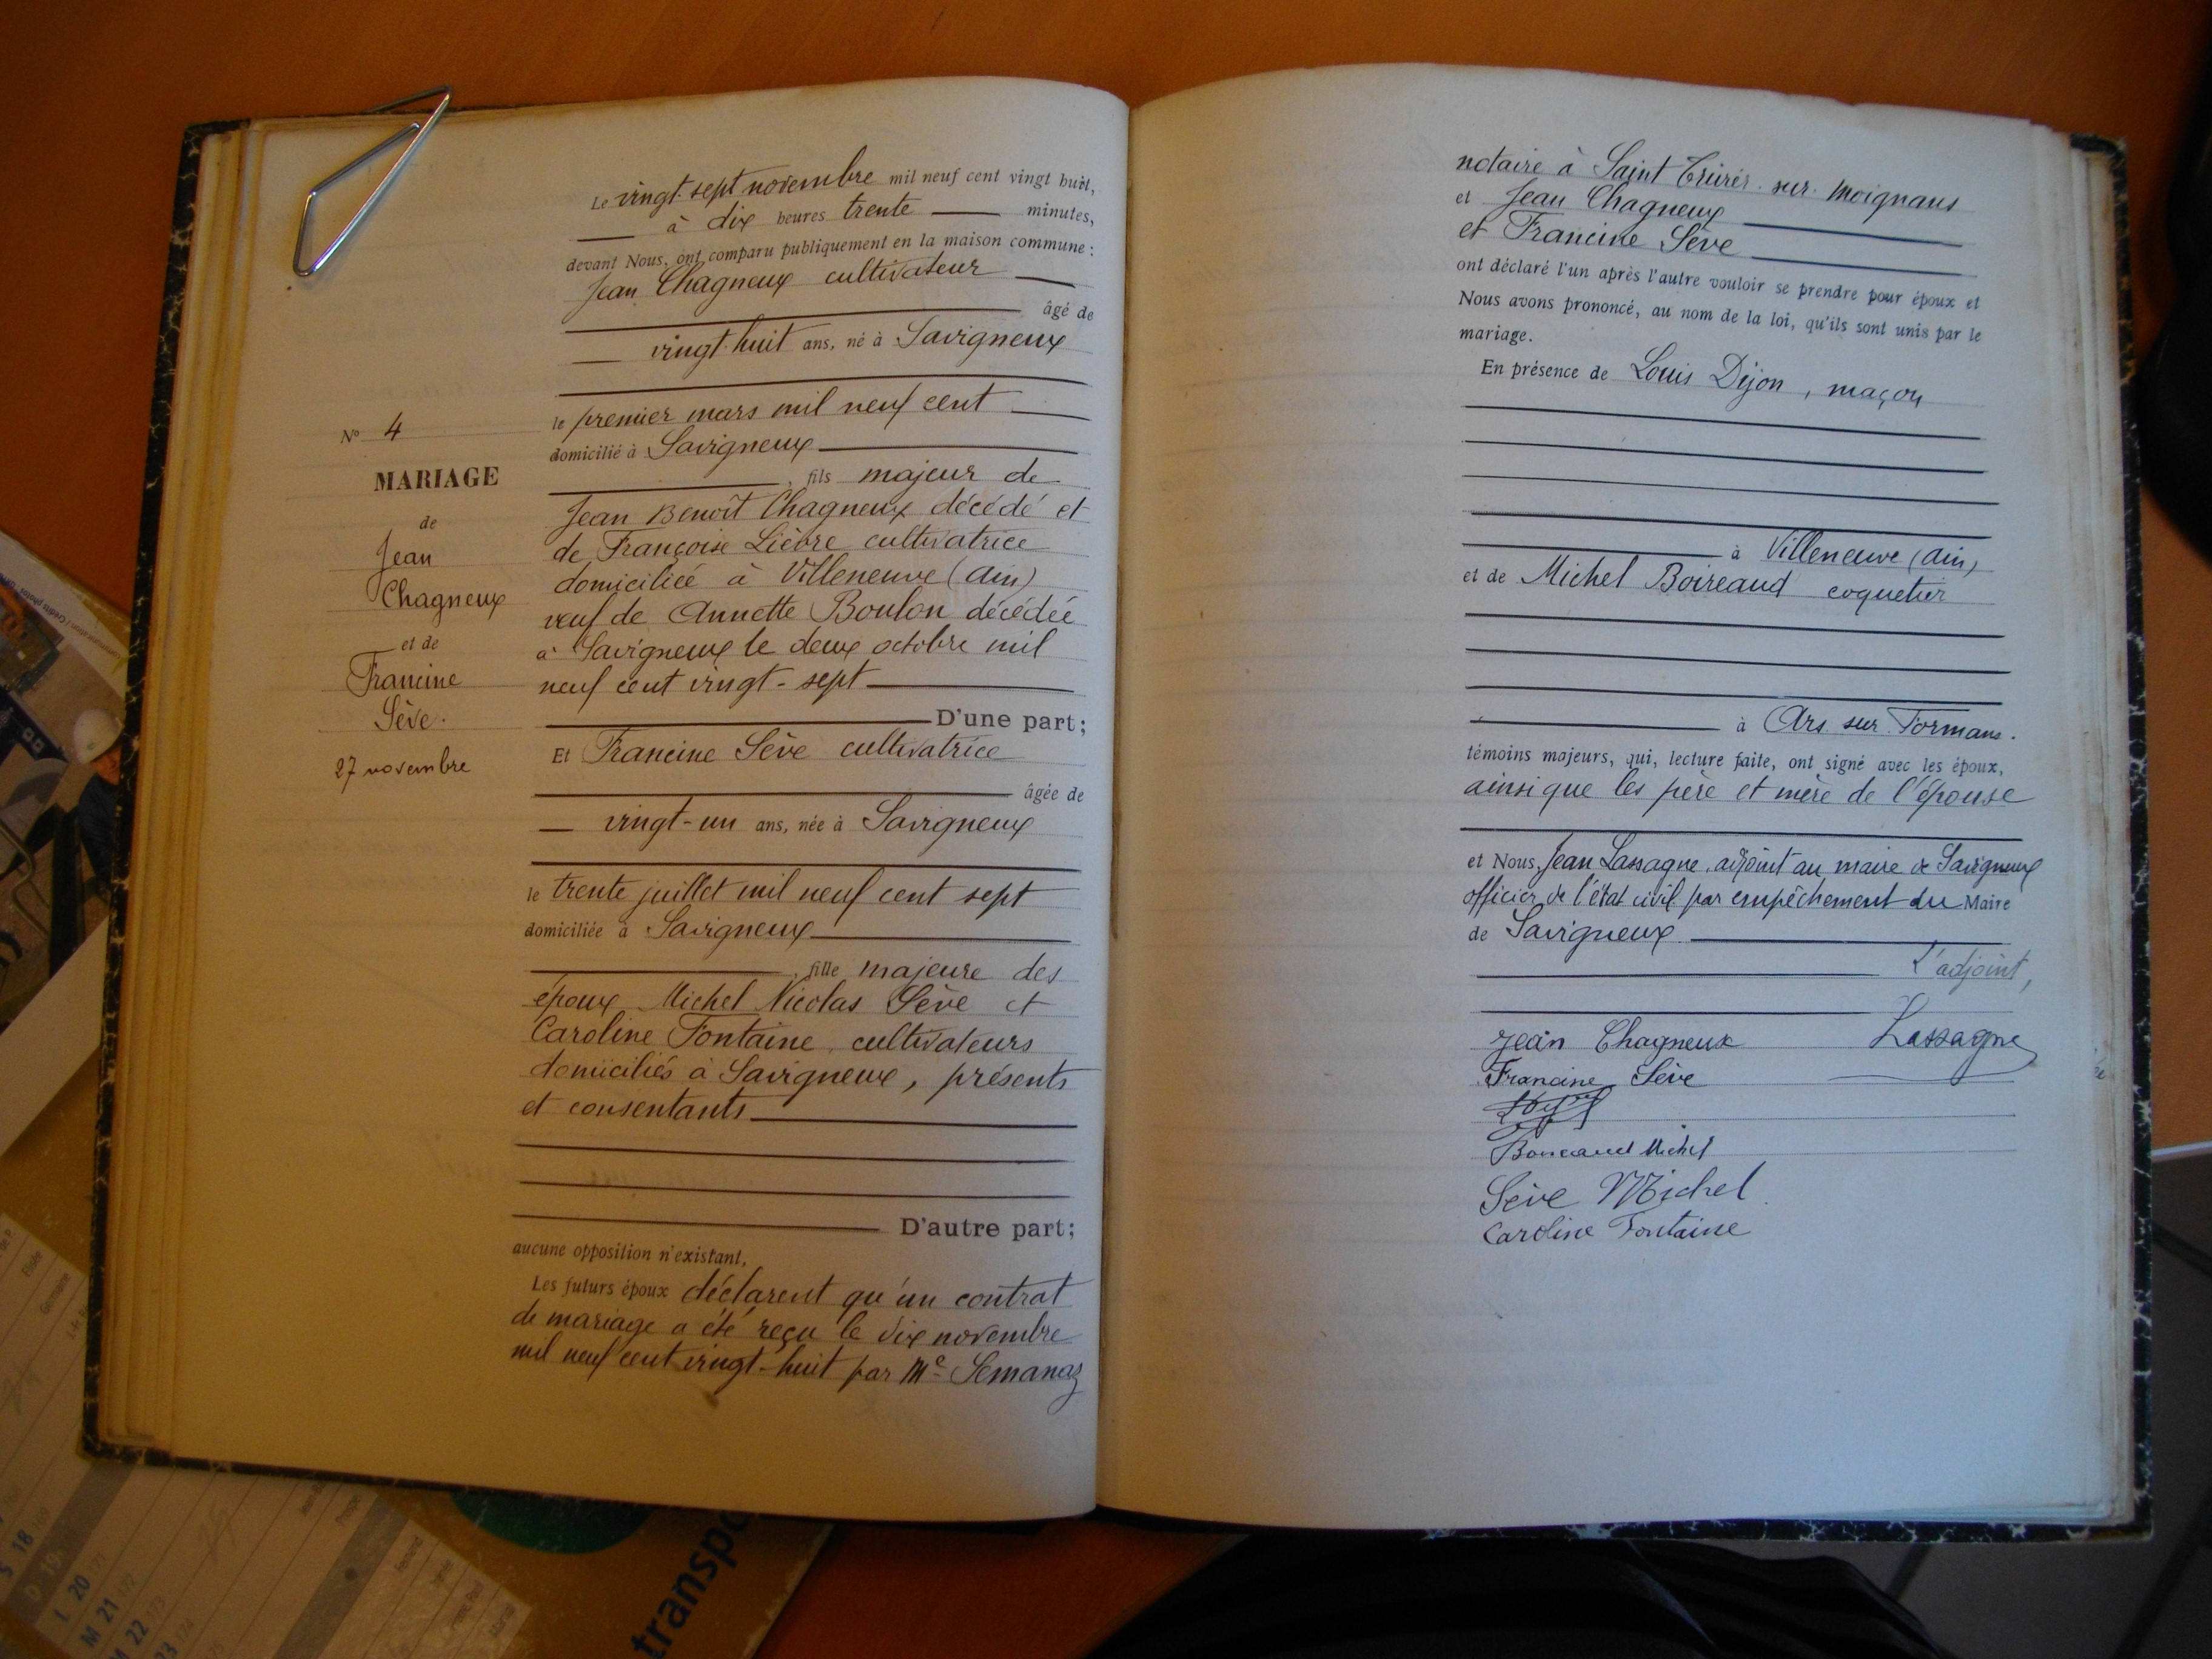 Le vingt-sept novembre mil neuf cent vingt huit,
à dix heures trente minutes,
devant Nous, ont comparu publiquement en la maison commune :
Jean Chagneux cultivateur
âgé de
vingt-huit ans, né à Savigneux
le premier mars mil neuf cent
domicilié à Savigneux
, fils majeur de
Jean Benoît Chagneux décédé et
de Françoise Lièvre cultivatrice
domiciliée à Villeneuve (Ain)
veuf de Annette Boulon décédée
à Savigneux le deux octobre mil
neuf cent vingt-sept
D'une part;
Et Francine Sève cultivatrice
âgée de
vingt-un ans, née à Savigneux
le trente juillet mil neuf cent sept
domiciliée à Savigneux
, fille majeure des
époux Michel Nicolas Sève et
Caroline Fontaine, cultivateurs
domiciliés à Savigneux, présents
et consentants
D'autre part;
aucune opposition n'existant,
Les futurs époux déclarent qu'un contrat
de mariage a été reçu le dix novembre
mil neuf cent vingt-huit par Me Semanaz
Nº 4
MARIAGE
de
Jean
Chagneux
et de
Francine
Sève.
27 novembre
notaire à Saint Trivier-sur-Moignans
et Jean Chagneux
et Francine Sève
ont déclaré l'un après l'autre vouloir se prendre pour époux et
Nous avons prononcé, au nom de la loi, qu'ils sont unis par le
mariage.
En présence de Louis Dijon, maçon
à Villeneuve (Ain)
et de Michel Boireaud coquetier
à Ars-sur-Formans.
témoins majeurs, qui, lecture faite, ont signé avec les époux,
ainsi que les père et mère de l'épouse
et Nous, Jean Lassagne, adjoint au maire de Savigneux
officier de l'état civil par empêchement du Maire
de Savigneux
L'adjoint,
Jean Chagneux Lassagne
Francine Sève
Boireaud Michel
Sève Michel
Caroline Fontaine
transpo
D 19
L 20
M 21
M 22